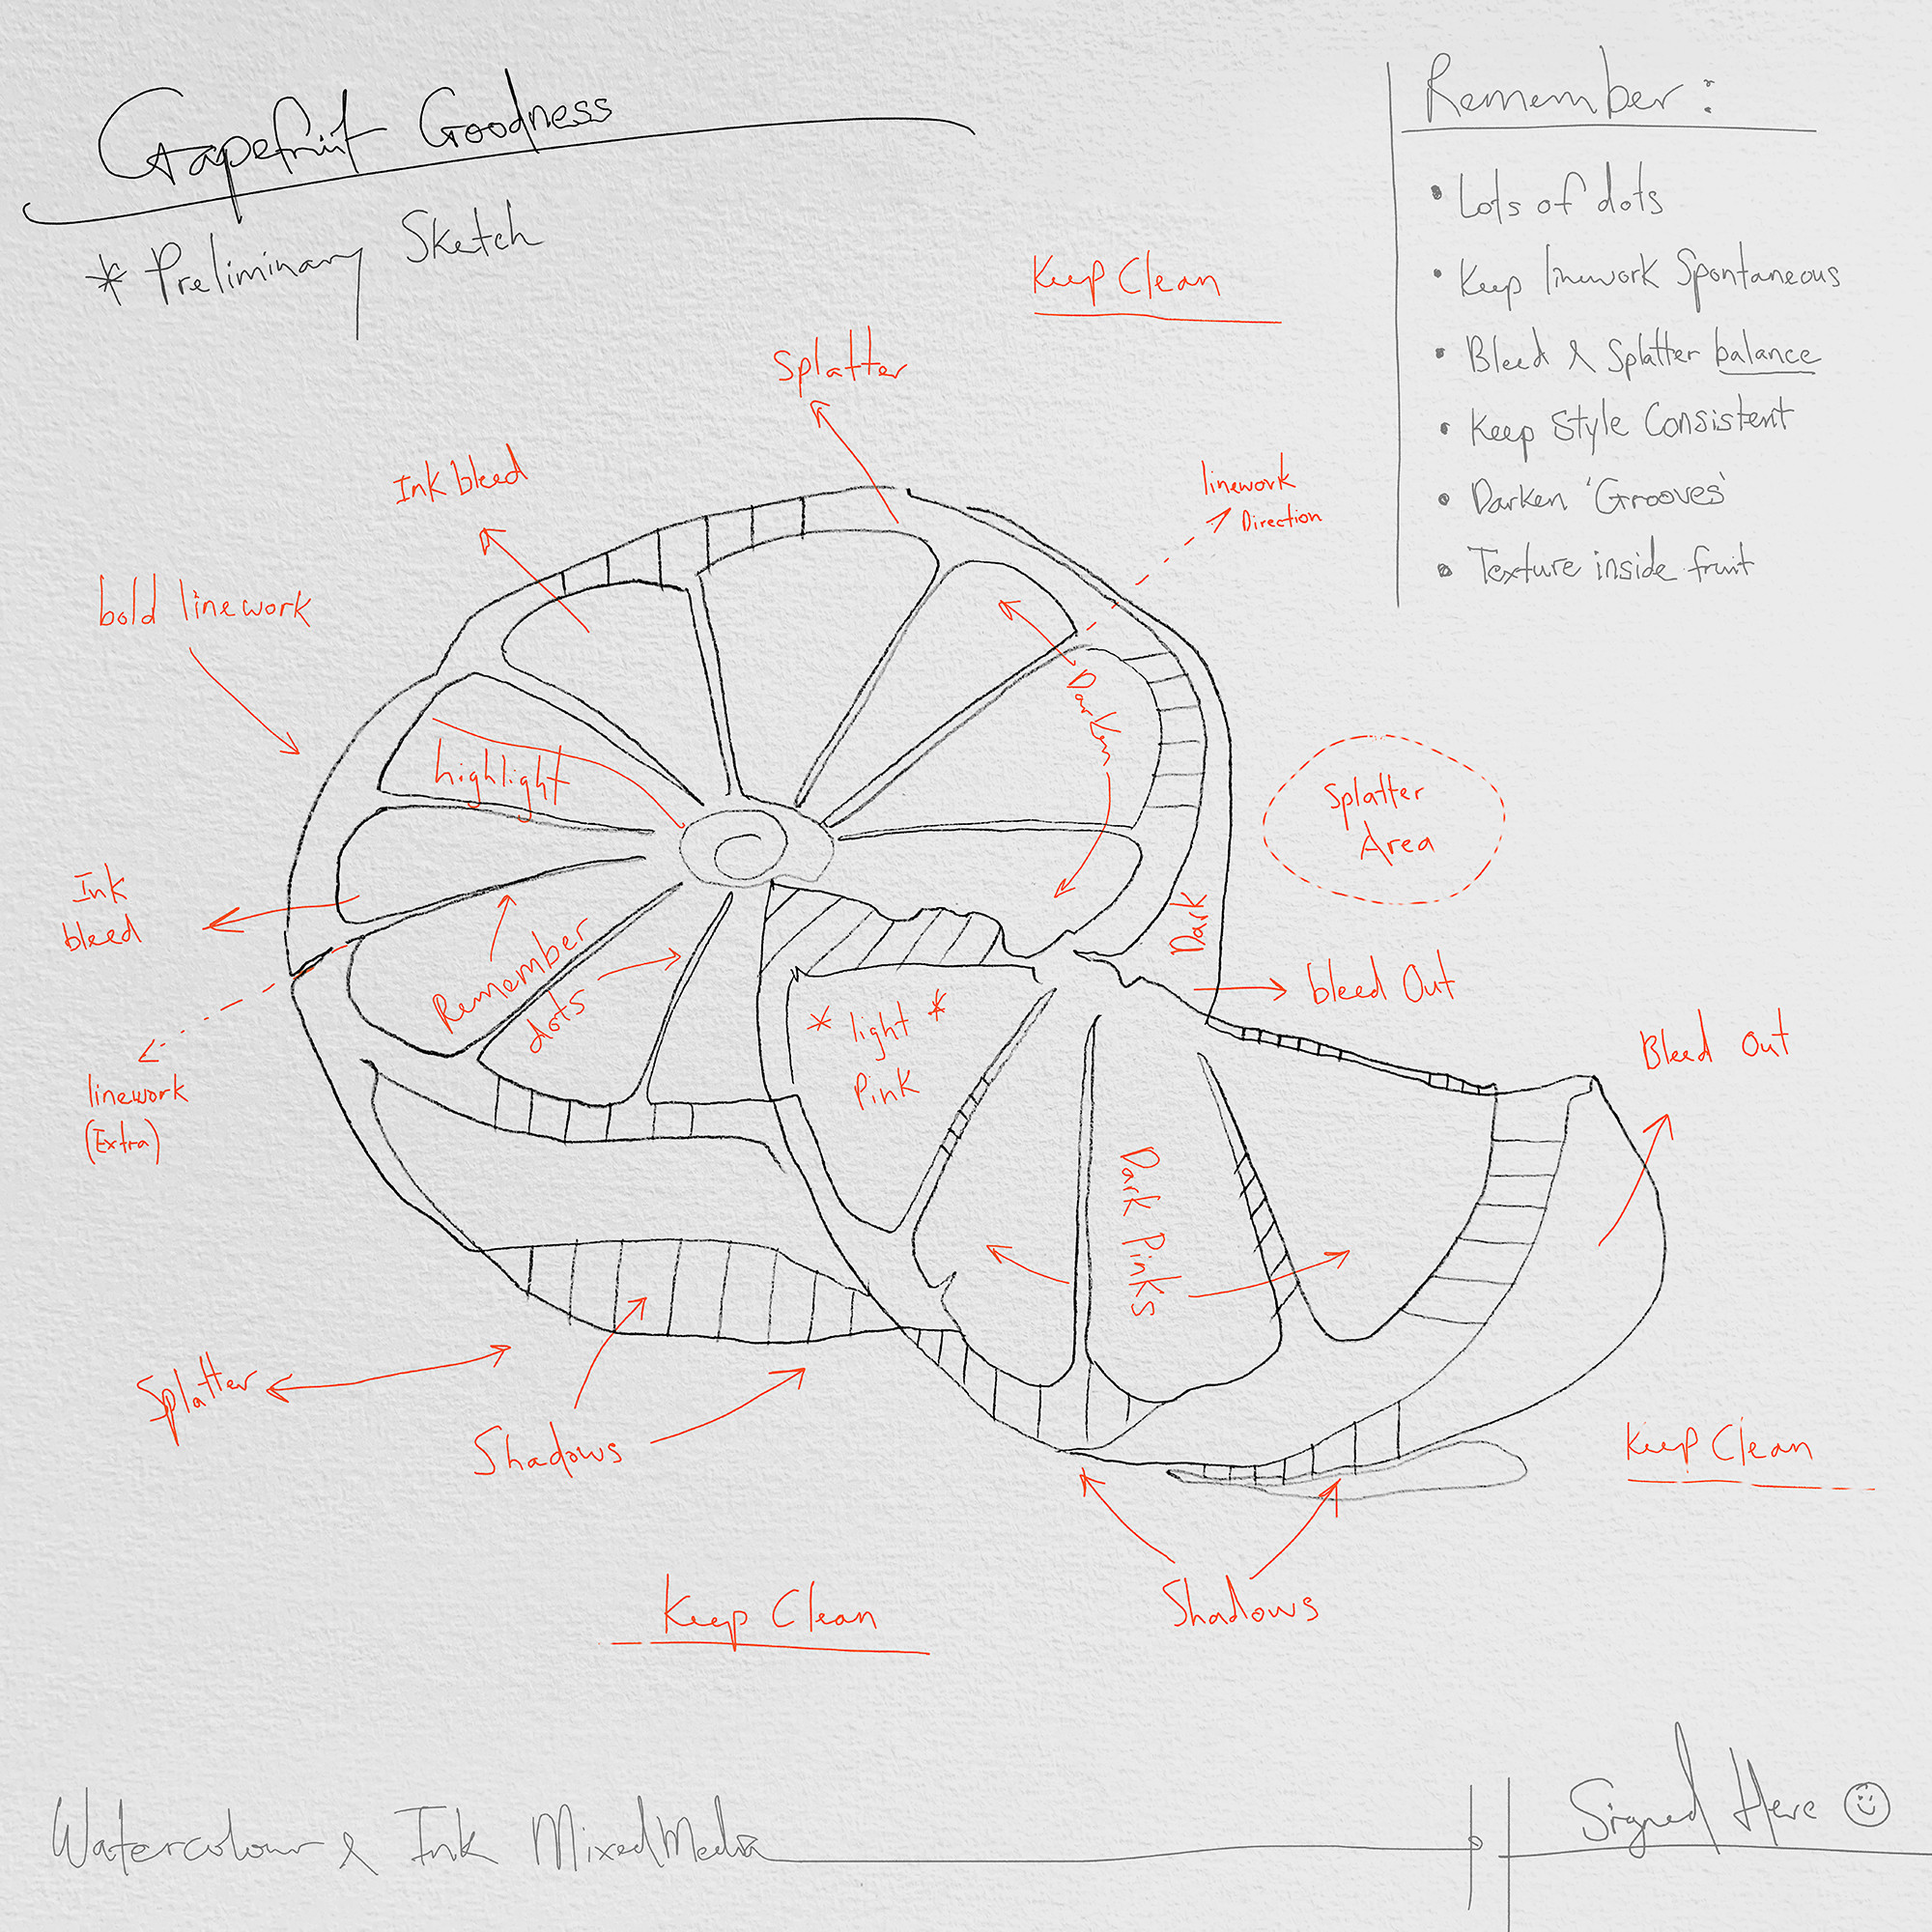 Grapefruit Goodness
* Preliminary Sketch
Remember :
• Lots of dots
• Keep linework Spontaneous
• Bleed & Splatter balance
• Keep Style Consistent
• Darken 'Grooves'
• Texture inside fruit
Keep Clean
Splatter
Ink bleed
linework
Direction
bold linework
Darken
highlight
Splatter
Area
Ink
bleed
Dark
Remember
dots
bleed Out
* light *
Pink
Bleed Out
linework
(Extra)
Dark Pinks
Splatter
Shadows
Keep Clean
Keep Clean
Shadows
Watercolour & Ink Mixed Media
Signed Here